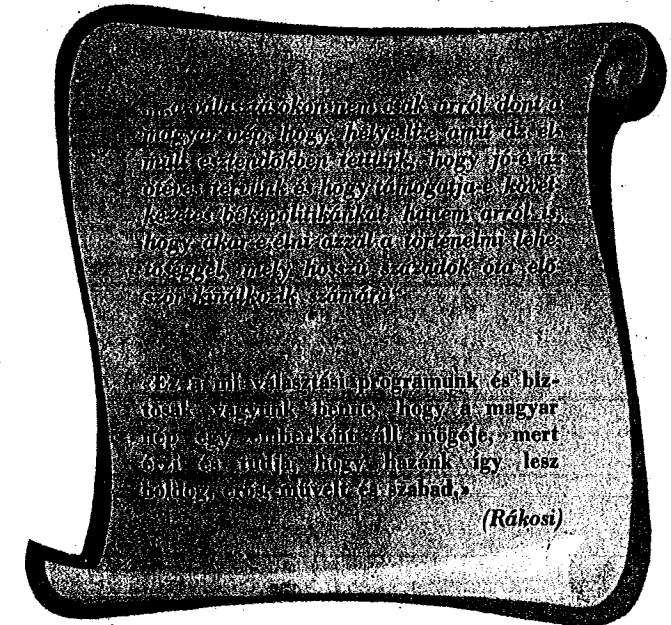 «...a választásokon nem csak arról dönt a
magyar nép, hogy helyesli-e amit az el-
mult esztendőkben tettünk, hogy jó-e az
ötéves tervünk és hogy támogatja-e követ-
kezetes békepolitikánkat, hanem arról is,
hogy akar-e élni azzal a történelmi lehe-
tőséggel, mely hosszú századok óta elő-
ször kínálkozik számára»
«Ez a mi választási programunk és biz-
tosak vagyunk benne, hogy a magyar
nép egy emberként áll mögéje, mert
érzi és tudja, hogy hazánk így lesz
boldog, erős, művelt és szabad.»
(Rákosi)